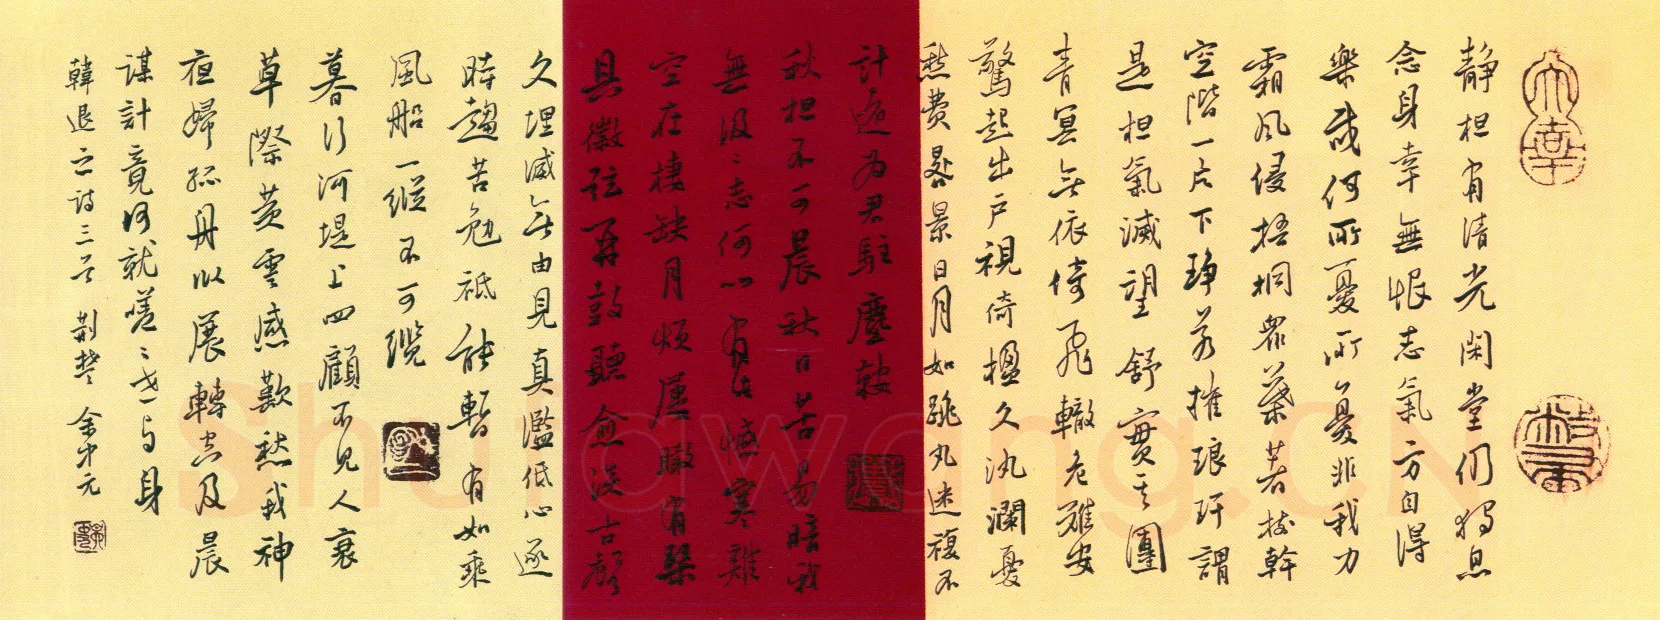 大幸
靜夜有清光閑堂仍獨息
念身幸無恨志氣方自得
樂哉何所憂所憂非我力
霜風侵梧桐眾葉著樹幹
空階一片下琤若摧琅玕謂
是夜氣滅望舒實其團
青冥無依倚飛轍危難安
驚起出戶視倚楹久汍瀾憂
愁費晷景日月如跳丸迷復不
計遠為君駐塵鞍
秋夜不可晨秋日苦易暗我
無汲〻志何以有此憾寒雞
空在棲缺月煩屢瞰有琴
具徽弦再鼓聽愈淡古聲
久埋滅無由見真濫低心逐
時趨苦勉祗能暫有如乘
風船一縱不可纜
暮行河堤上四顧不見人衰
草際黃雲感歎愁我神
夜歸孤舟臥展轉空及晨
謀計竟何就嗟〻世與身
韓退之詩三首 荊楚 余中元
Shufawang.CN